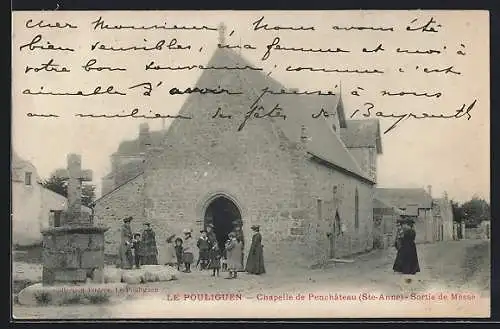 Cher Monsieur, Nous avons été
bien sensibles, ma femme et moi, à
votre bon souvenir; comme c'est
aimable d'avoir pensé à nous
au milieu des fêtes de Bayreuth
LE POULIGUEN — Chapelle de Penchâteau (Ste-Anne) - Sortie de Messe